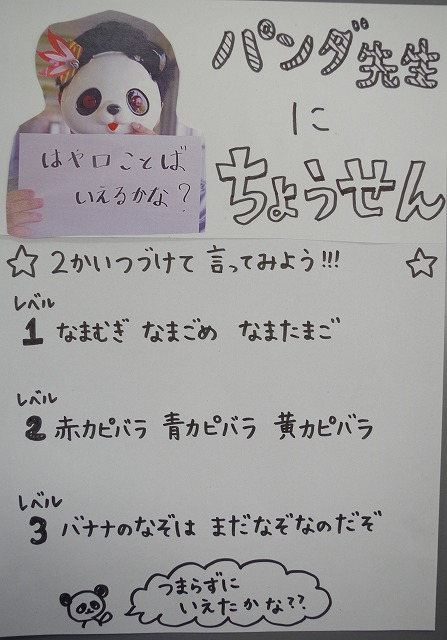 パンダ先生
に
ちょうせん
はや口ことば
いえるかな?
☆ 2かいつづけて 言ってみよう!!! ☆
レベル
1 なまむぎ なまごめ なまたまご
レベル
2 赤カピバラ 青カピバラ 黄カピバラ
レベル
3 バナナのなぞは まだなぞなのだぞ
つまらずに
いえたかな??